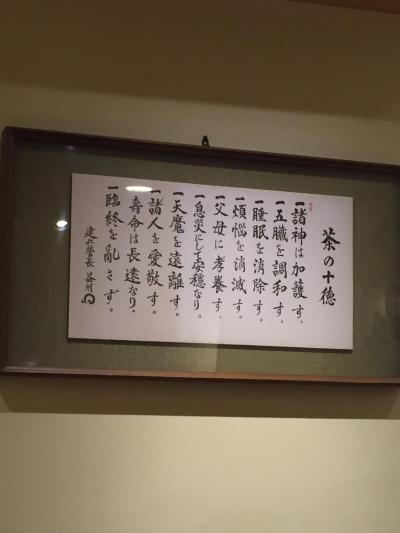 茶の十徳
一諸神は加護す。
一五臓を調和す。
一睡眠を消除す。
一煩悩を消滅す。
一父母に孝養す。
一息災にして安穏なり。
一天魔を遠離す。
一諸人を愛敬す。
一寿命は長遠なり。
一臨終を乱さず。
建仁管長 益州